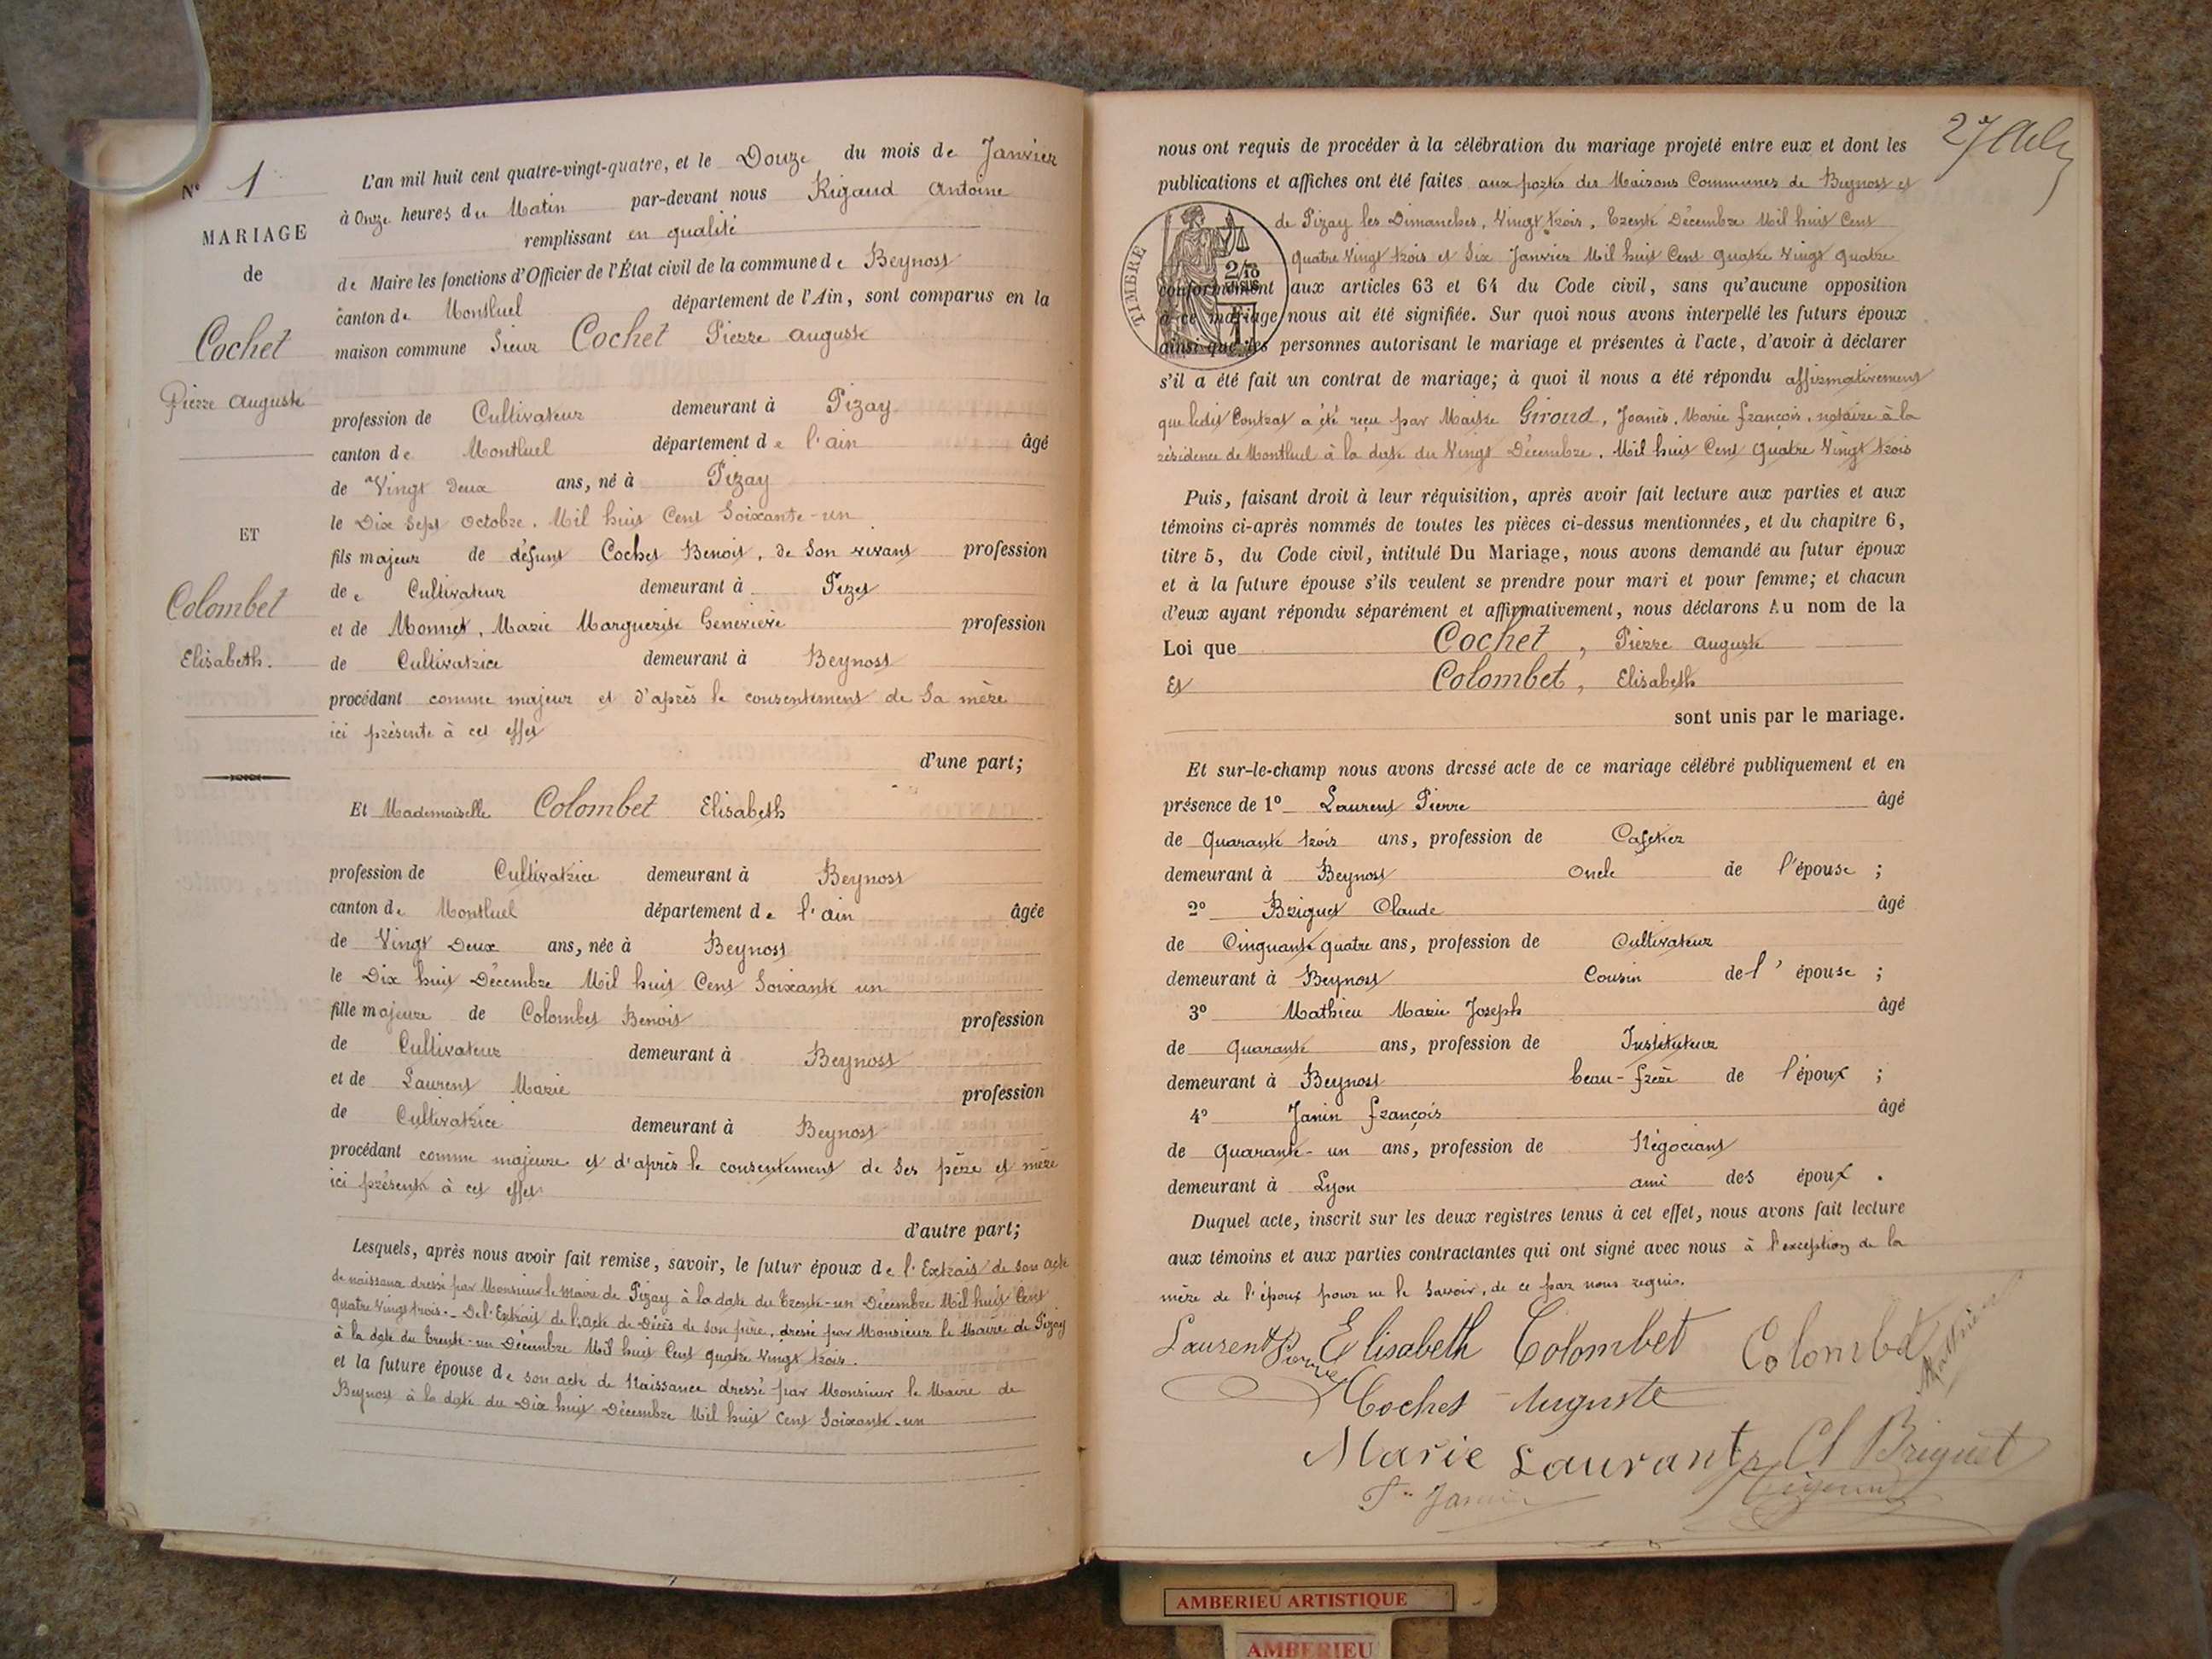 N° 1
MARIAGE
de
Cochet
Pierre Auguste
ET
Colombet
Elisabeth.
L'an mil huit cent quatre-vingt-quatre, et le Douze du mois de Janvier
à Onze heures du Matin par-devant nous Rigaud Antoine
remplissant en qualité
de Maire les fonctions d'Officier de l'État civil de la commune de Beynost
canton de Montluel département de l'Ain, sont comparus en la
maison commune Sieur Cochet Pierre Auguste
profession de Cultivateur demeurant à Pizay
canton de Montluel département de l'ain âgé
de Vingt Deux ans, né à Pizay
le Dix Sept Octobre. Mil huit Cent Soixante-un
fils majeur de défunt Cochet Benoit, de Son vivant profession
de Cultivateur demeurant à Pizet
et de Monnet, Marie Marguerite Geneviève profession
de Cultivatrice demeurant à Beynost
procédant comme majeur et d'après le consentement de Sa mère
ici présente à cet effet
d'une part;
Et Mademoiselle Colombet Elisabeth
profession de Cultivatrice demeurant à Beynost
canton de Montluel département de l'ain âgée
de Vingt Deux ans, née à Beynost
le Dix huit Décembre Mil huit Cent Soixante un
fille majeure de Colombet Benoit profession
de Cultivateur demeurant à Beynost
et de Laurent Marie profession
de Cultivatrice demeurant à Beynost
procédant comme majeure et d'après le consentement de Ses père et mère
ici présents à cet effet
d'autre part;
Lesquels, après nous avoir fait remise, savoir, le futur époux de l'Extrait de son acte
de naissance dressé par Monsieur le Maire de Pizay à la date du Trente-un Décembre Mil huit Cent
quatre Vingt trois._ De l'Extrait de l'acte de Décès de Son père, dressé par Monsieur le Maire de Pizay
à la date du Trente-un Décembre Mil huit Cent quatre Vingt trois.
et la future épouse de son acte de Naissance dressé par Monsieur le Maire de
Beynost à la date du Dix huit Décembre Mil huit Cent Soixante-un
27
nous ont requis de procéder à la célébration du mariage projeté entre eux et dont les
publications et affiches ont été faites aux portes des Maisons Communes de Beynost et
de Pizay les Dimanches, Vingt trois, Trente Décembre Mil huit Cent
quatre Vingt trois et Six Janvier Mil huit Cent quatre Vingt quatre
TIMBRE
conformément aux articles 63 et 64 du Code civil, sans qu'aucune opposition
à ce mariage nous ait été signifiée. Sur quoi nous avons interpellé les futurs époux
ainsi que les personnes autorisant le mariage et présentes à l'acte, d'avoir à déclarer
s'il a été fait un contrat de mariage; à quoi il nous a été répondu affirmativement
que ledit Contrat a été reçu par Maitre Giroud, Joanès, Marie françois, notaire à la
résidence de Montluel à la date du Vingt Décembre, Mil huit Cent Quatre Vingt trois
Puis, faisant droit à leur réquisition, après avoir fait lecture aux parties et aux
témoins ci-après nommés de toutes les pièces ci-dessus mentionnées, et du chapitre 6,
titre 5, du Code civil, intitulé Du Mariage, nous avons demandé au futur époux
et à la future épouse s'ils veulent se prendre pour mari et pour femme; et chacun
d'eux ayant répondu séparément et affirmativement, nous déclarons Au nom de la
Loi que Cochet, Pierre Auguste
Et Colombet, Elisabeth
sont unis par le mariage.
Et sur-le-champ nous avons dressé acte de ce mariage célébré publiquement et en
présence de 1° Laurent Pierre âgé
de Quarante trois ans, profession de Cafetier
demeurant à Beynost Oncle de l'épouse ;
2° Briguet Claude âgé
de Cinquante quatre ans, profession de Cultivateur
demeurant à Beynost Cousin de l'épouse ;
3° Mathieu Marie Joseph âgé
de Quarante ans, profession de Instituteur
demeurant à Beynost beau-frère de l'époux ;
4° Janin françois âgé
de Quarante-un ans, profession de Négociant
demeurant à Lyon ami des époux .
Duquel acte, inscrit sur les deux registres tenus à cet effet, nous avons fait lecture
aux témoins et aux parties contractantes qui ont signé avec nous à l'exception de la
mère de l'époux pour ne le Savoir, de ce par nous requis.
Laurent Pierre Elisabeth Colombet Colombet Mathieu
Cochet Auguste
Marie Laurant Cl Briguet
F. Janin
AMBERIEU ARTISTIQUE
AMBERIEU